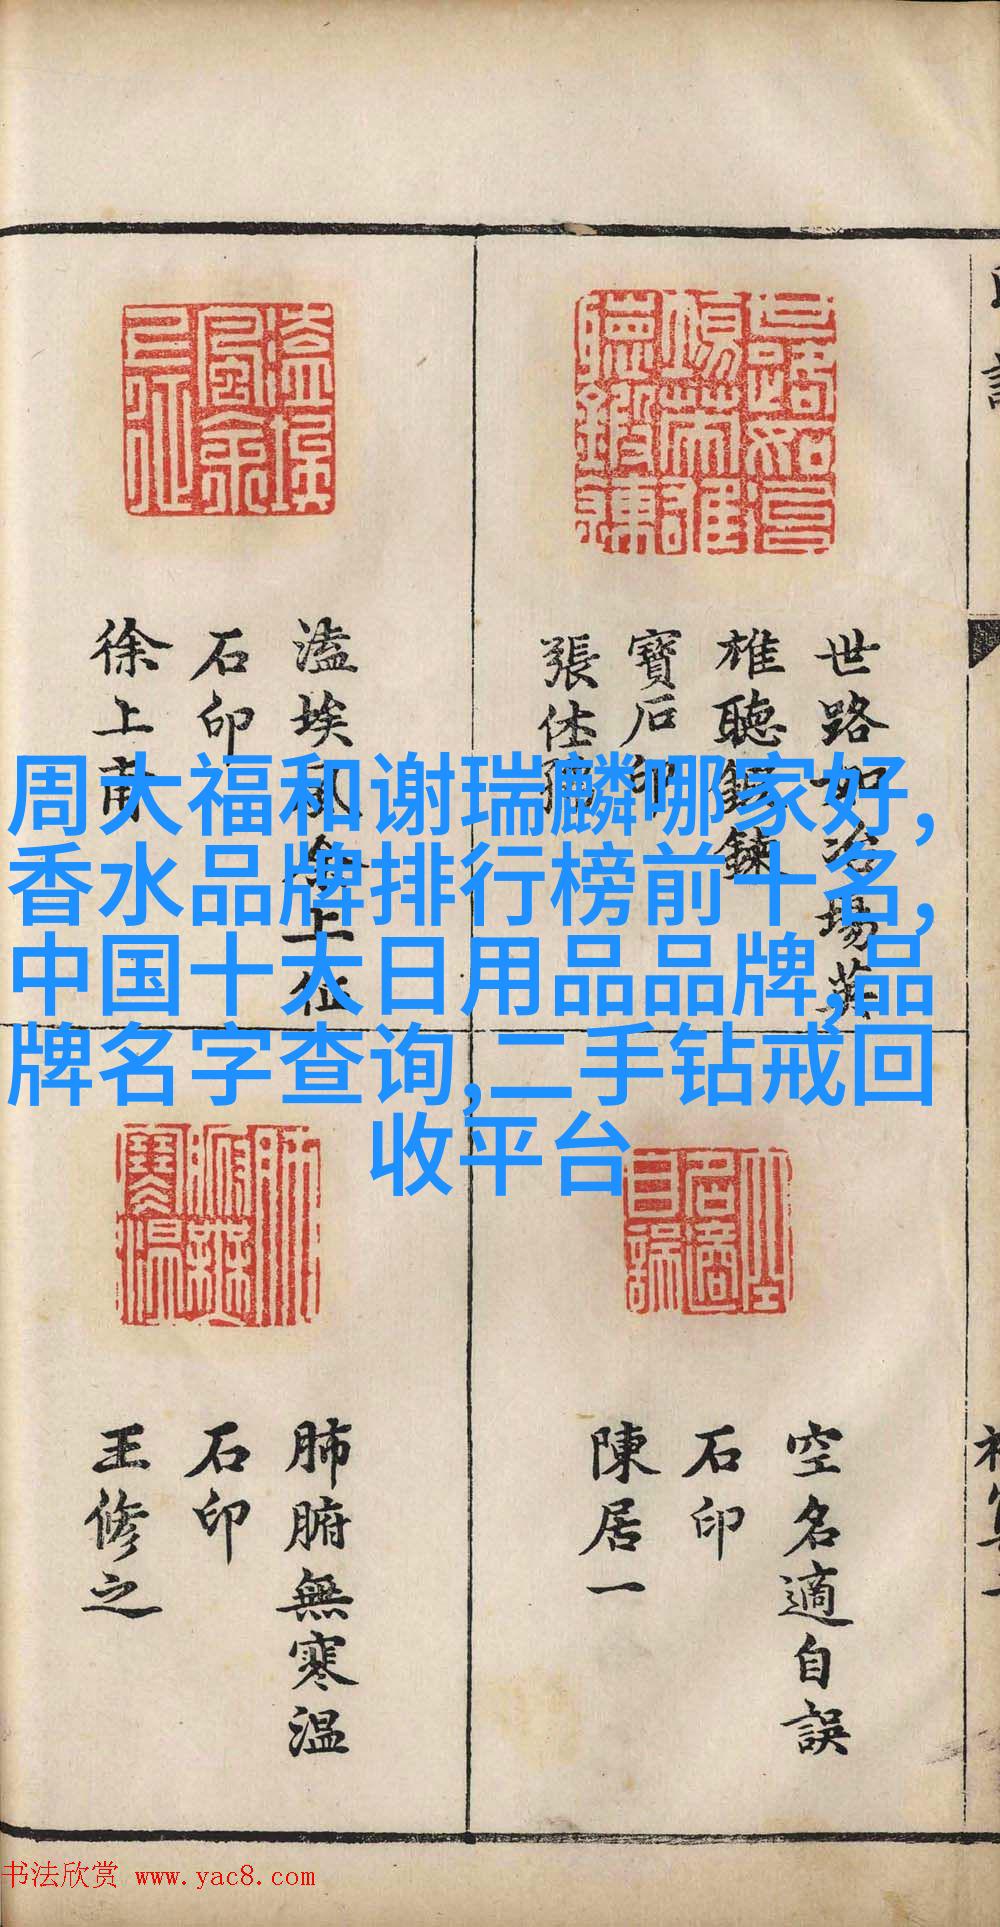 世路如冶場英
雄聽鍛鍊
寶石印
張仕
溘埃風余上征
石印
徐上甫
空名適自誤
石印
陳居一
肺腑無寒温
石印
王修之
周大福和谢瑞麟哪家好,
香水品牌排行榜前十名,
中国十大日用品品牌,品
牌名字查询,二手钻戒回
收平台
书法欣赏 www.yac8.com